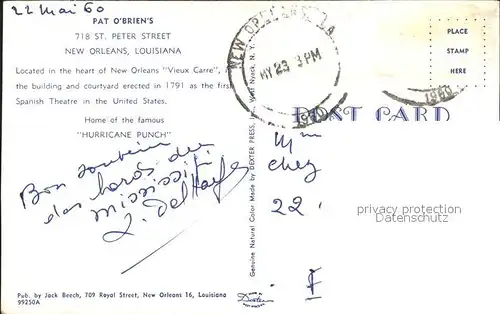 22 Mai 60
PAT O'BRIEN'S
718 ST. PETER STREET
NEW ORLEANS, LOUISIANA
Located in the heart of New Orleans "Vieux Carre",
the building and courtyard erected in 1791 as the first
Spanish Theatre in the United States.
Home of the famous
"HURRICANE PUNCH"
Bon souvenir
des bords du
Mississipi
Pub. by Jack Beech, 709 Royal Street, New Orleans 16, Louisiana
99250A
Genuine Natural Color Made by DEXTER PRESS, Inc., West Nyack, N. Y.
NEW ORLEANS, LA.
MY 23 3 PM
1960
PLACE
STAMP
HERE
1960
POST CARD
Mme
chez
22
F
privacy protection
Datenschutz
Dexter